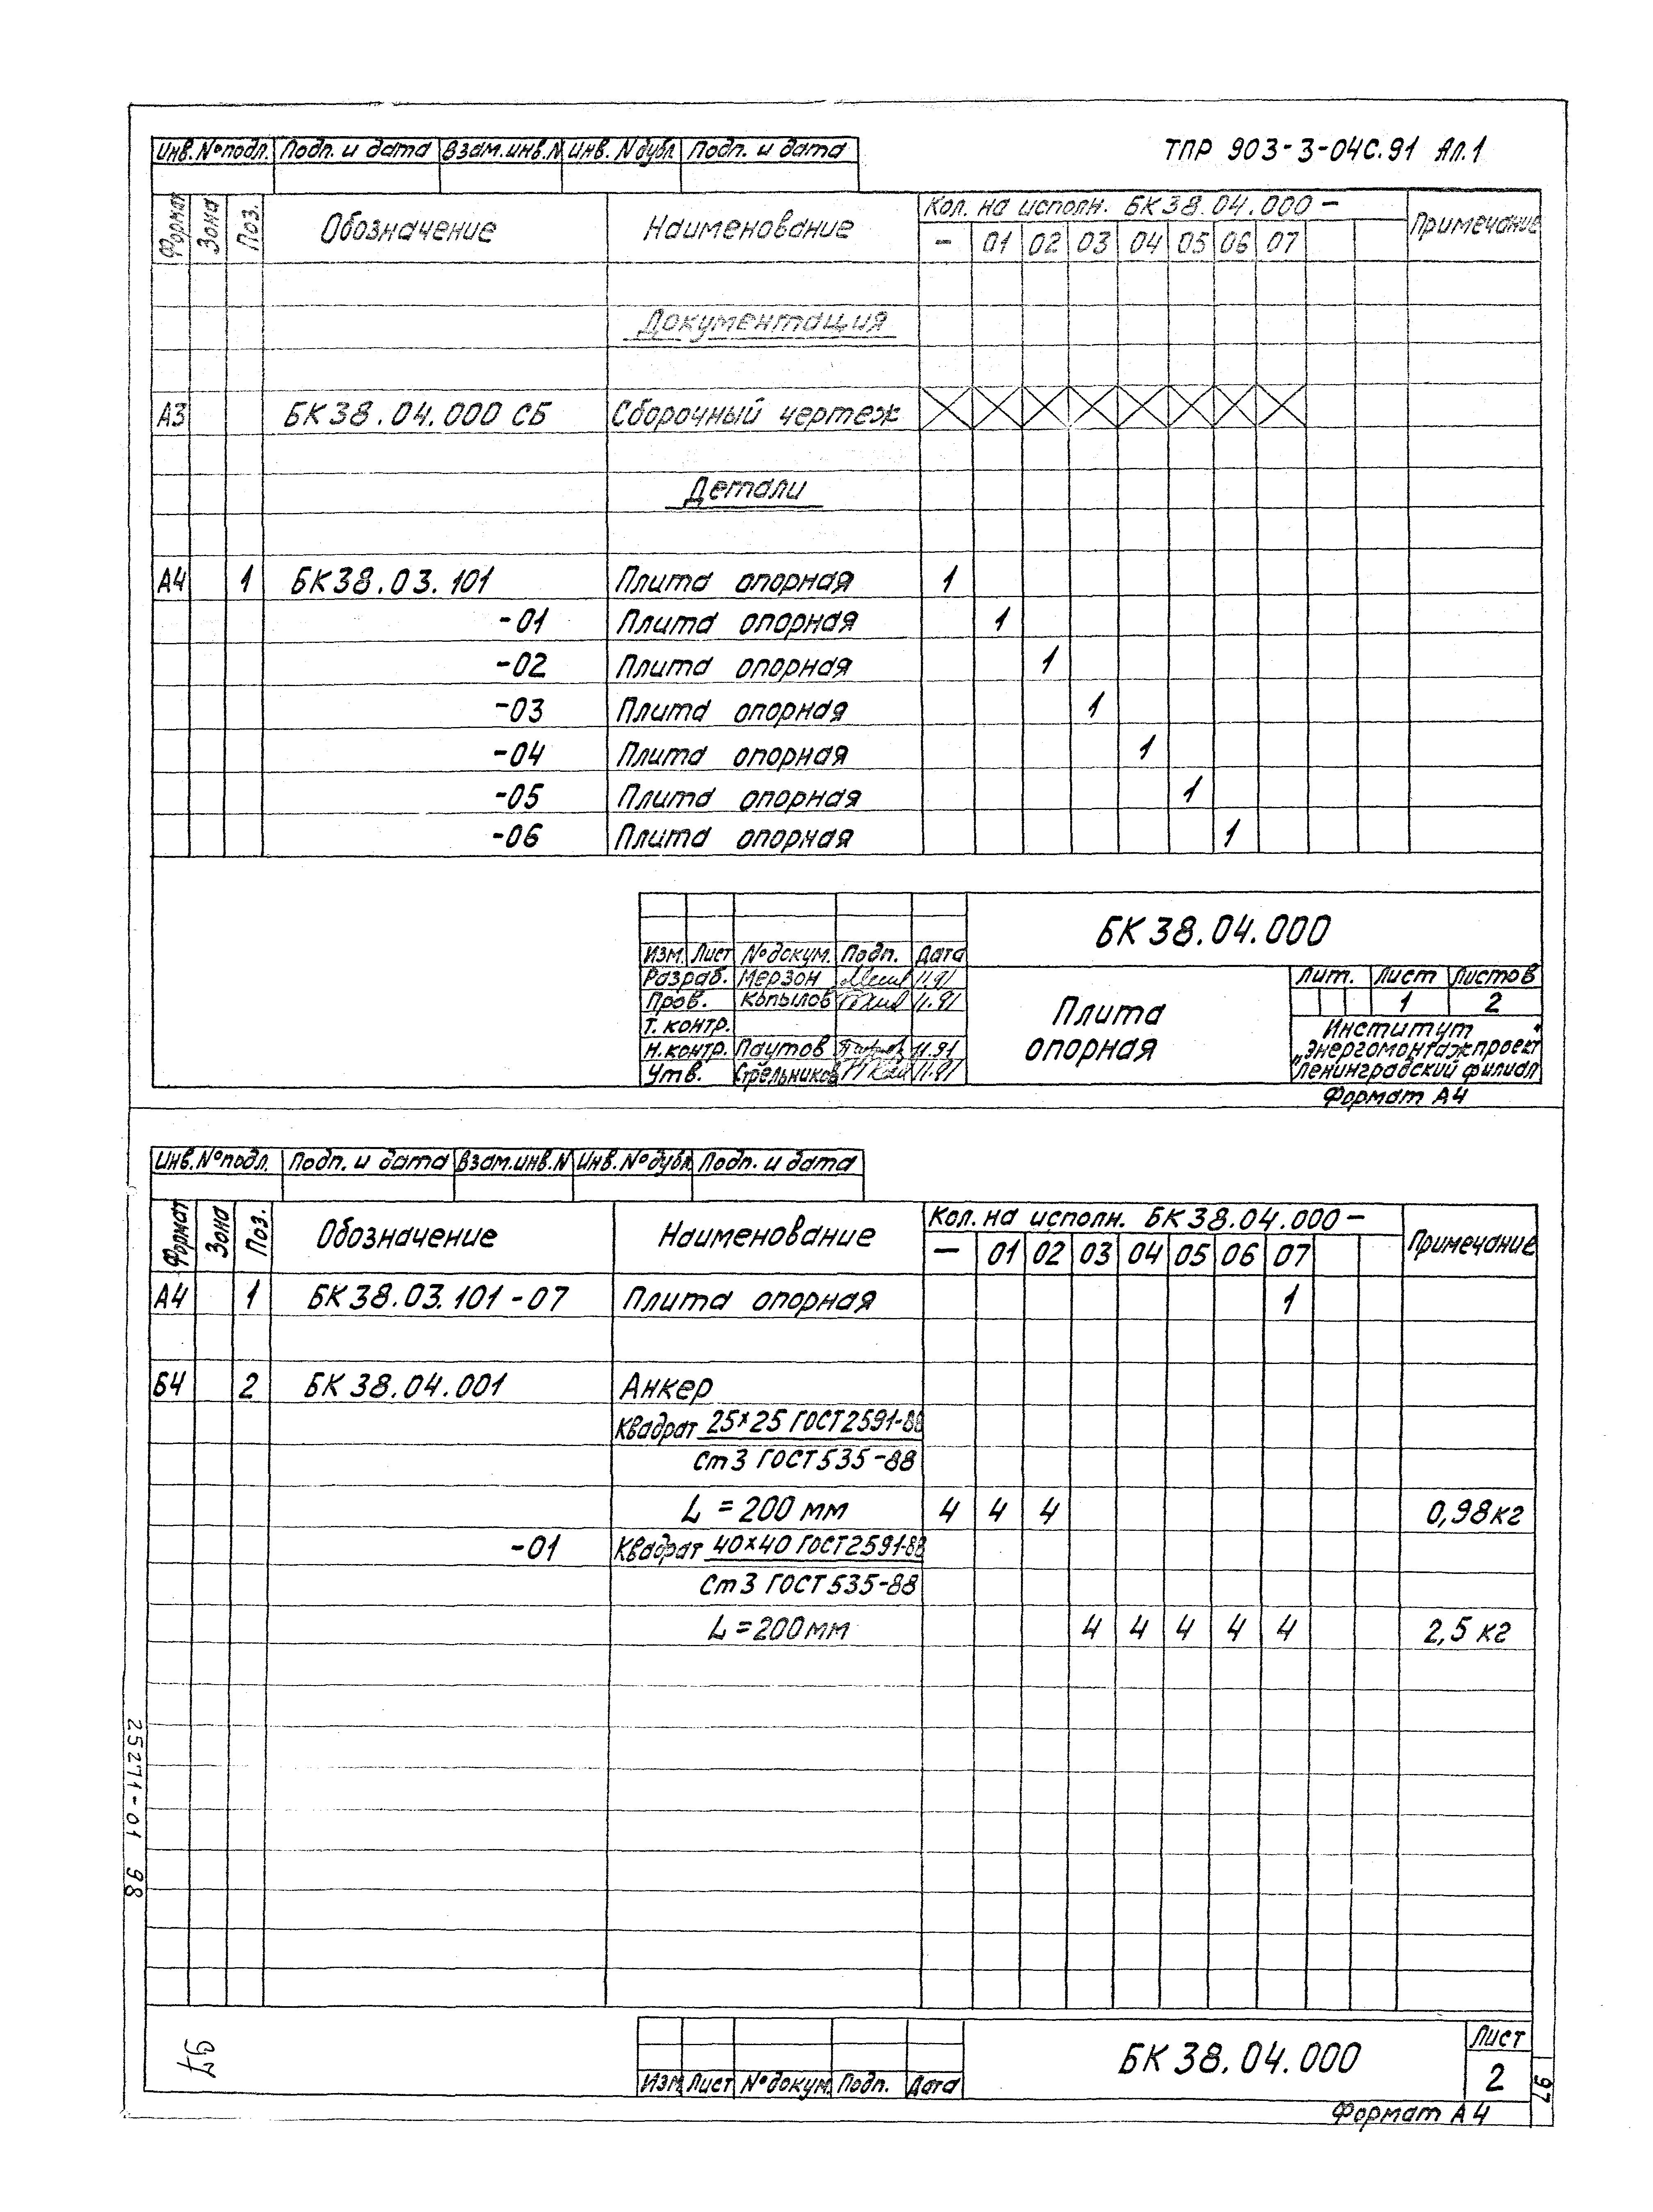 ТПР 903-3-04С.91 Ал.1
Инв.№подл. Подп. и дата Взам.инв.N Инв. N дубл Подп. и дата
Формат Зона Поз. Обозначение Наименование Кол. на исполн. БК38.04.000 — Примечание
— 01 02 03 04 05 06 07
Документация
А3 БК38.04.000 СБ Сборочный чертеж
Детали
А4 1 БК38.03.101 Плита опорная 1
-01 Плита опорная 1
-02 Плита опорная 1
-03 Плита опорная 1
-04 Плита опорная 1
-05 Плита опорная 1
-06 Плита опорная 1
БК38.04.000
Изм. Лист №докум. Подп. Дата
Разраб. Мерзон 11.91
Пров. Копылов 11.91
Т. контр.
Н.контр. Паутов 11.91
Утв. Стрельников 11.91
Плита
опорная
Лит. Лист Листов
1 2
Институт
„Энергомонтажпроект"
Ленинградский филиал
Формат А4
Инв.№подл. Подп. и дата Взам.инв.N Инв.№дубл Подп. и дата
Формат Зона Поз. Обозначение Наименование Кол. на исполн. БК38.04.000 — Примечание
— 01 02 03 04 05 06 07
А4 1 БК38.03.101-07 Плита опорная 1
Б4 2 БК38.04.001 Анкер
Квадрат 25×25 ГОСТ2591-88
Ст3 ГОСТ535-88
L = 200 мм 4 4 4 0,98кг
-01 Квадрат 40×40 ГОСТ2591-88
Ст3 ГОСТ535-88
L=200мм 4 4 4 4 4 2,5 кг
25271-01 98
97
Изм Лист №докум. Подп. Дата
БК38.04.000
Лист
2
97
Формат А4